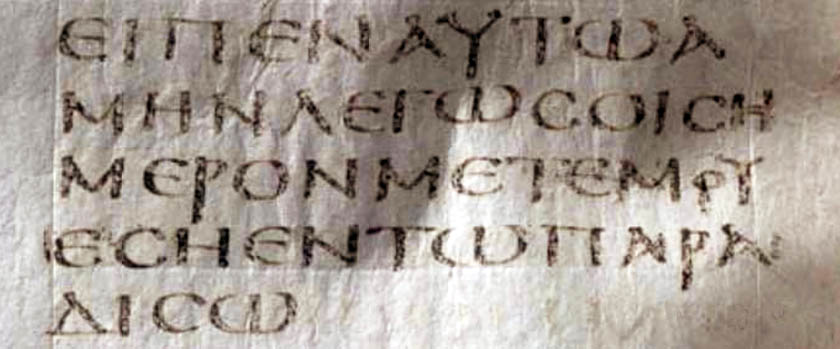 ΕΙΠΕΝΑΥΤΩΑ
ΜΗΝΛΕΓΩϹΟΙϹΗ
ΜΕΡΟΝΜΕΤΕΜΡΥ
ΕϹΗΕΝΤΩΠΑΡΑ
ΔΙϹΩ